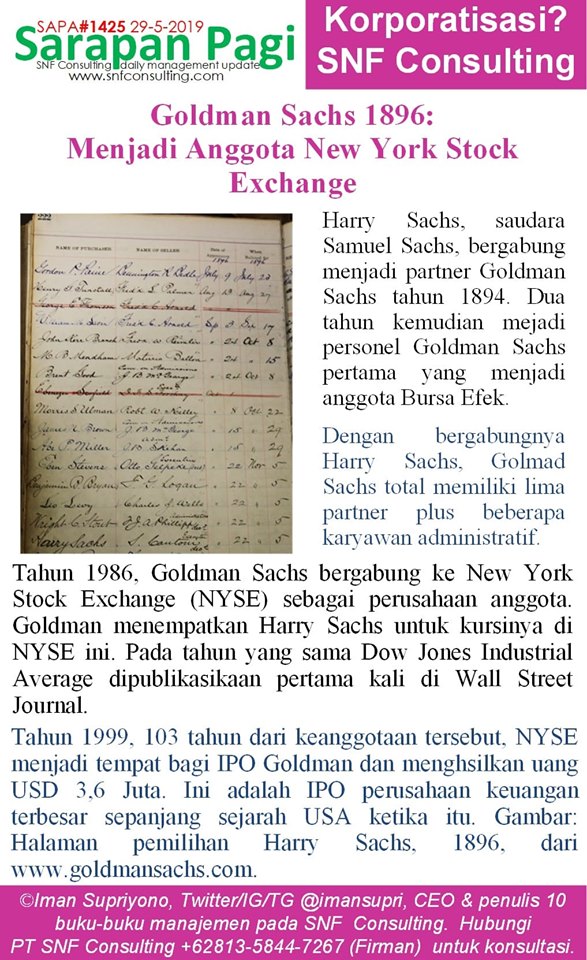 SAPA#1425 29-5-2019
Sarapan Pagi
SNF Consulting daily management update
www.snfconsulting.com
Korporatisasi?
SNF Consulting
Goldman Sachs 1896:
Menjadi Anggota New York Stock
Exchange
222
NAME OF PURCHASER NAME OF SELLER Date of When
1896 1896
July 9 July 23
Aug 13 Aug 27
Sep 3 Sep 17
24 Oct 8
24 15
Brent Good 24 Oct 8
Morris S Ullman 8 Oct 22
James N Brown 15 29
Abe P Miller 15 29
22 Nov 5
Benjamin P Bryan E G Logan 22 5
Leo Levy Charles J Wells 22 5
22 5
Harry Sachs 22 5
Harry Sachs, saudara
Samuel Sachs, bergabung
menjadi partner Goldman
Sachs tahun 1894. Dua
tahun kemudian mejadi
personel Goldman Sachs
pertama yang menjadi
anggota Bursa Efek.
Dengan bergabungnya
Harry Sachs, Golmad
Sachs total memiliki lima
partner plus beberapa
karyawan administratif.
Tahun 1986, Goldman Sachs bergabung ke New York
Stock Exchange (NYSE) sebagai perusahaan anggota.
Goldman menempatkan Harry Sachs untuk kursinya di
NYSE ini. Pada tahun yang sama Dow Jones Industrial
Average dipublikasikaan pertama kali di Wall Street
Journal.
Tahun 1999, 103 tahun dari keanggotaan tersebut, NYSE
menjadi tempat bagi IPO Goldman dan menghsilkan uang
USD 3,6 Juta. Ini adalah IPO perusahaan keuangan
terbesar sepanjang sejarah USA ketika itu. Gambar:
Halaman pemilihan Harry Sachs, 1896, dari
www.goldmansachs.com.
©Iman Supriyono, Twitter/IG/TG @imansupri, CEO & penulis 10
buku-buku manajemen pada SNF Consulting. Hubungi
PT SNF Consulting +62813-5844-7267 (Firman) untuk konsultasi.